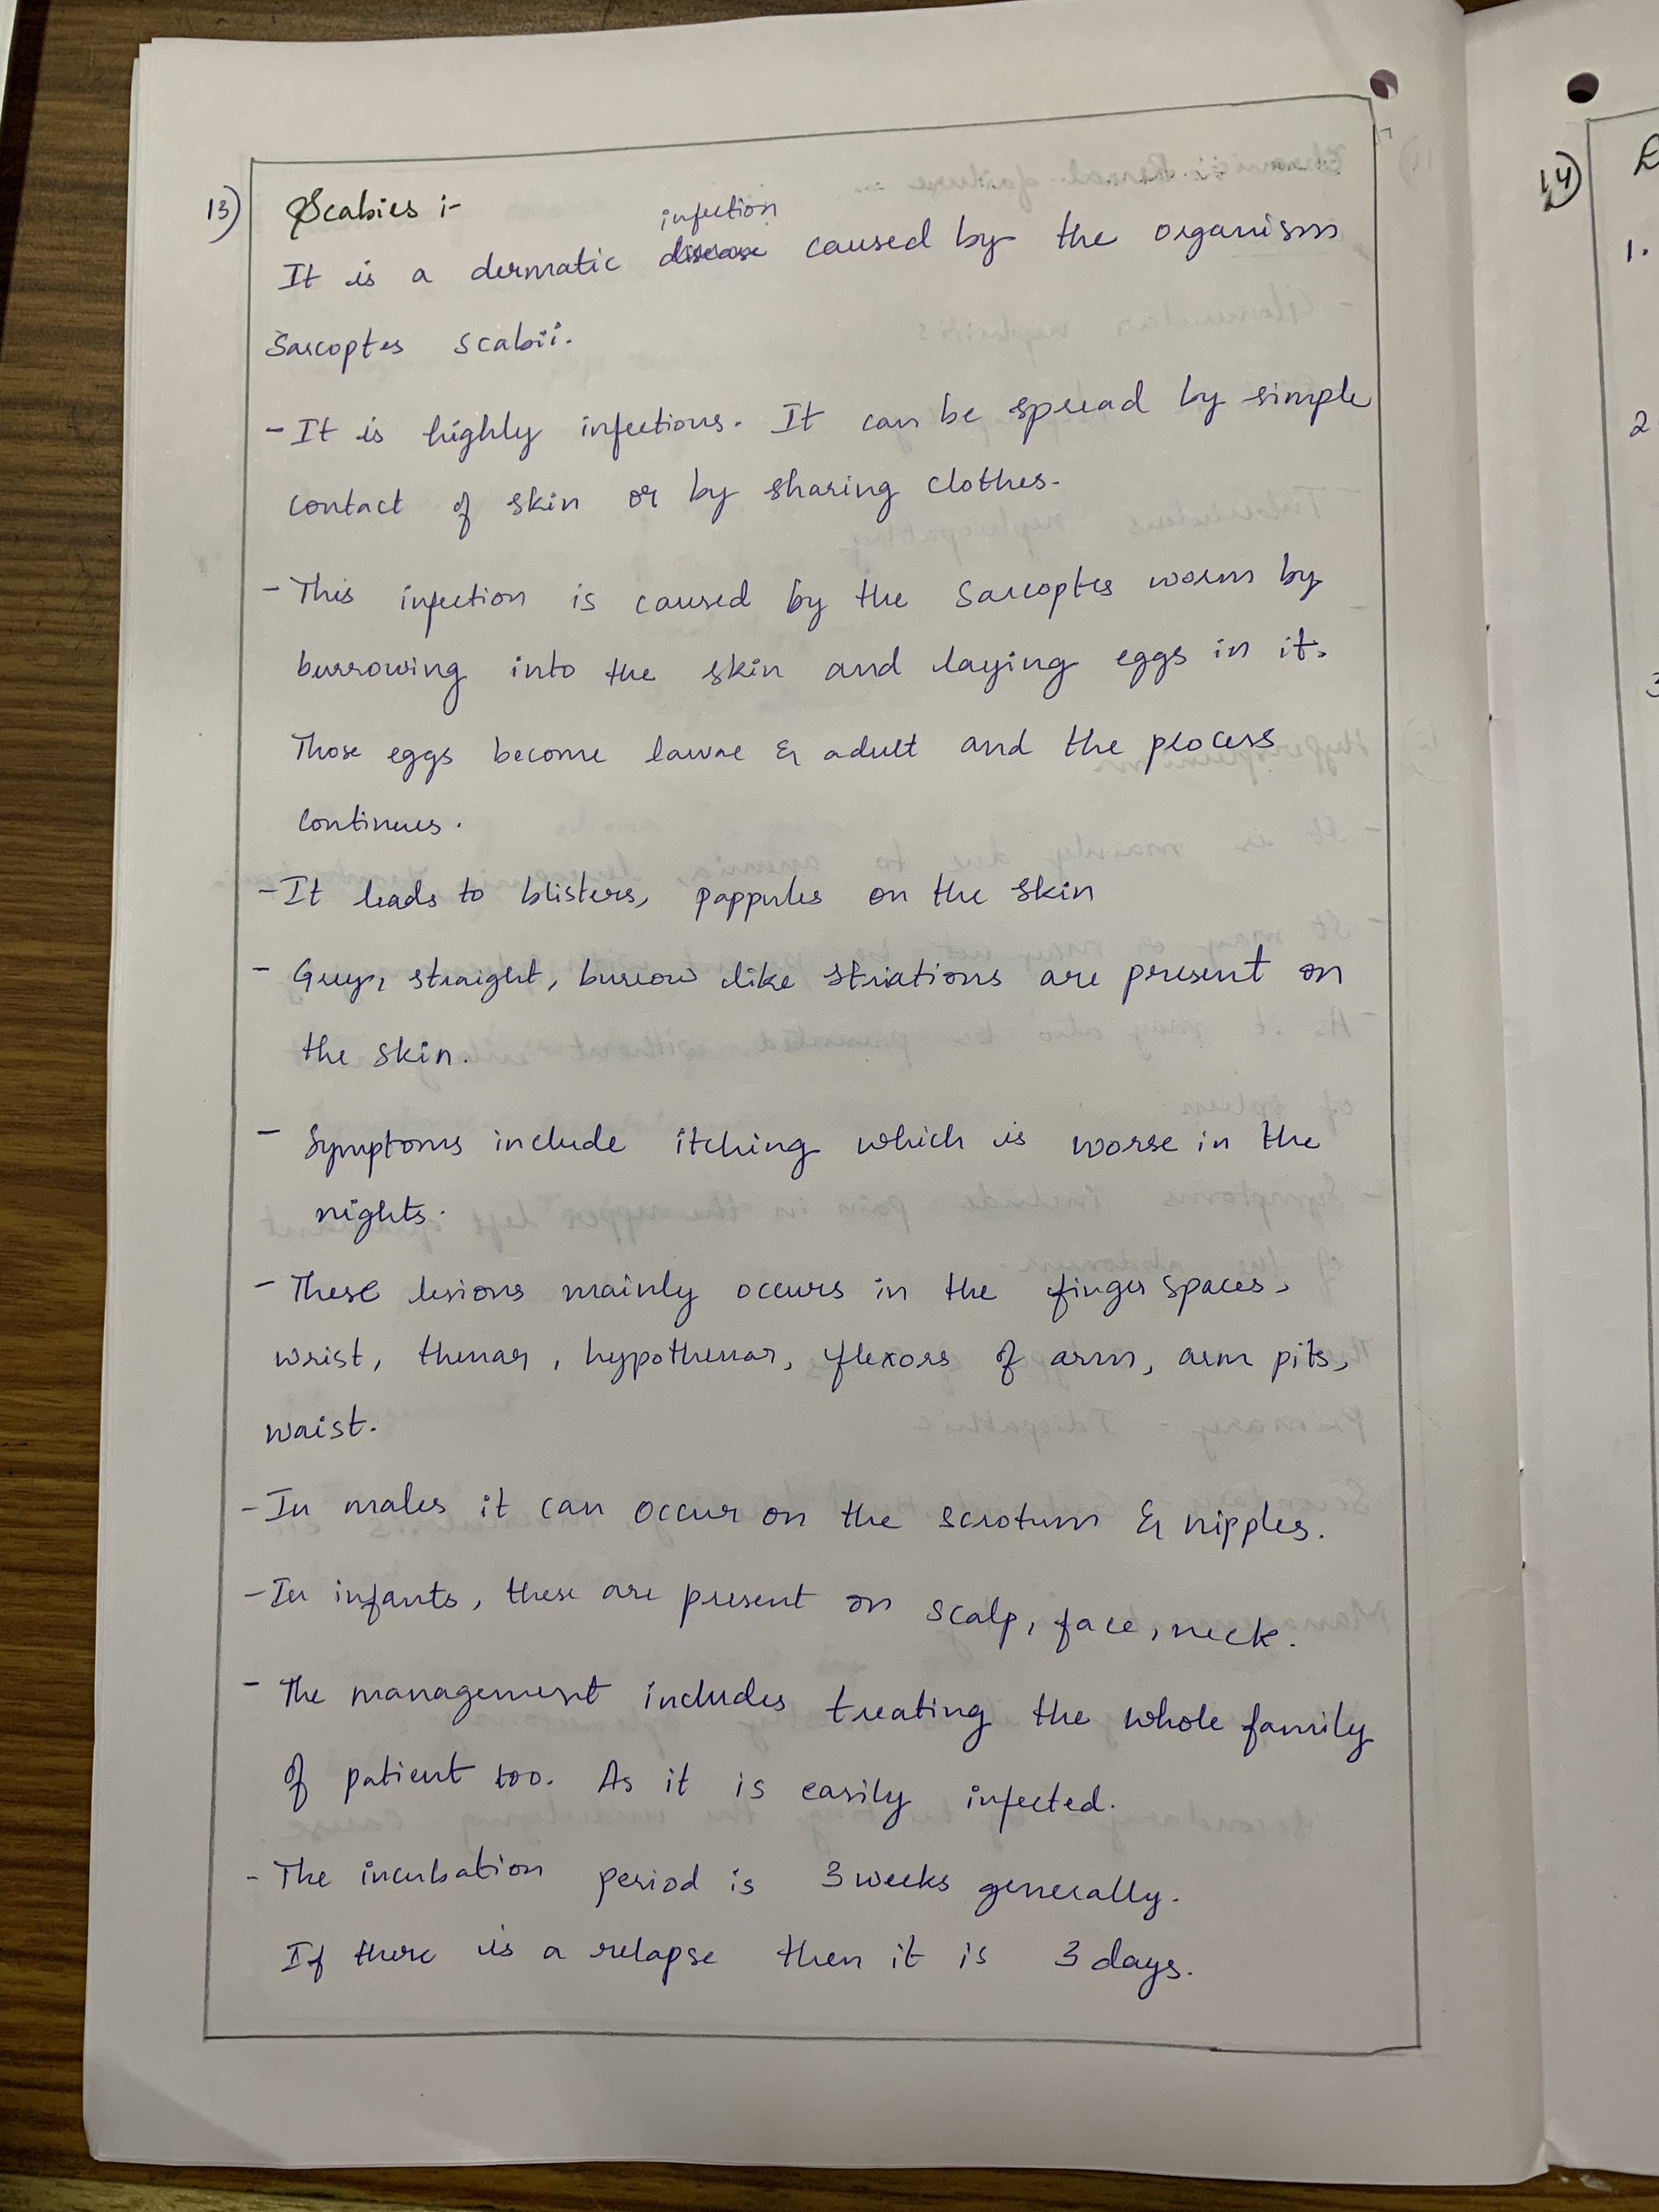 13) Scabies :-
infection
It is a dermatic disease caused by the organism
Sarcoptes scabii.
- It is highly infectious. It can be spread by simple
contact of skin or by sharing clothes.
- This infection is caused by the Sarcoptes worm by
burrowing into the skin and laying eggs in it.
Those eggs become larvae & adult and the process
continues.
- It leads to blisters, pappules on the skin
- Grey, straight, burrow like striations are present on
the skin.
- Symptoms include itching which is worse in the
nights.
- These lesions mainly occurs in the finger spaces,
wrist, thenar, hypothenar, flexors of arm, arm pits,
waist.
- In males it can occur on the scrotum & nipples.
- In infants, these are present on scalp, face, neck.
- The management includes treating the whole family
of patient too. As it is easily infected.
- The incubation period is 3 weeks generally.
If there is a relapse then it is 3 days.
14)
1.
2
3